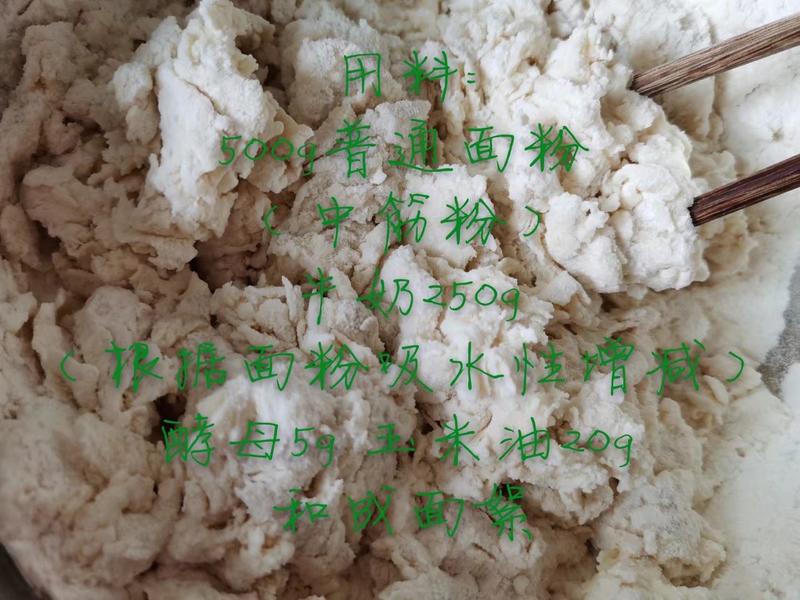 用料:
500g普通面粉
(中筋粉)
牛奶250g
(根据面粉吸水性增减)
酵母5g 玉米油20g
和成面絮